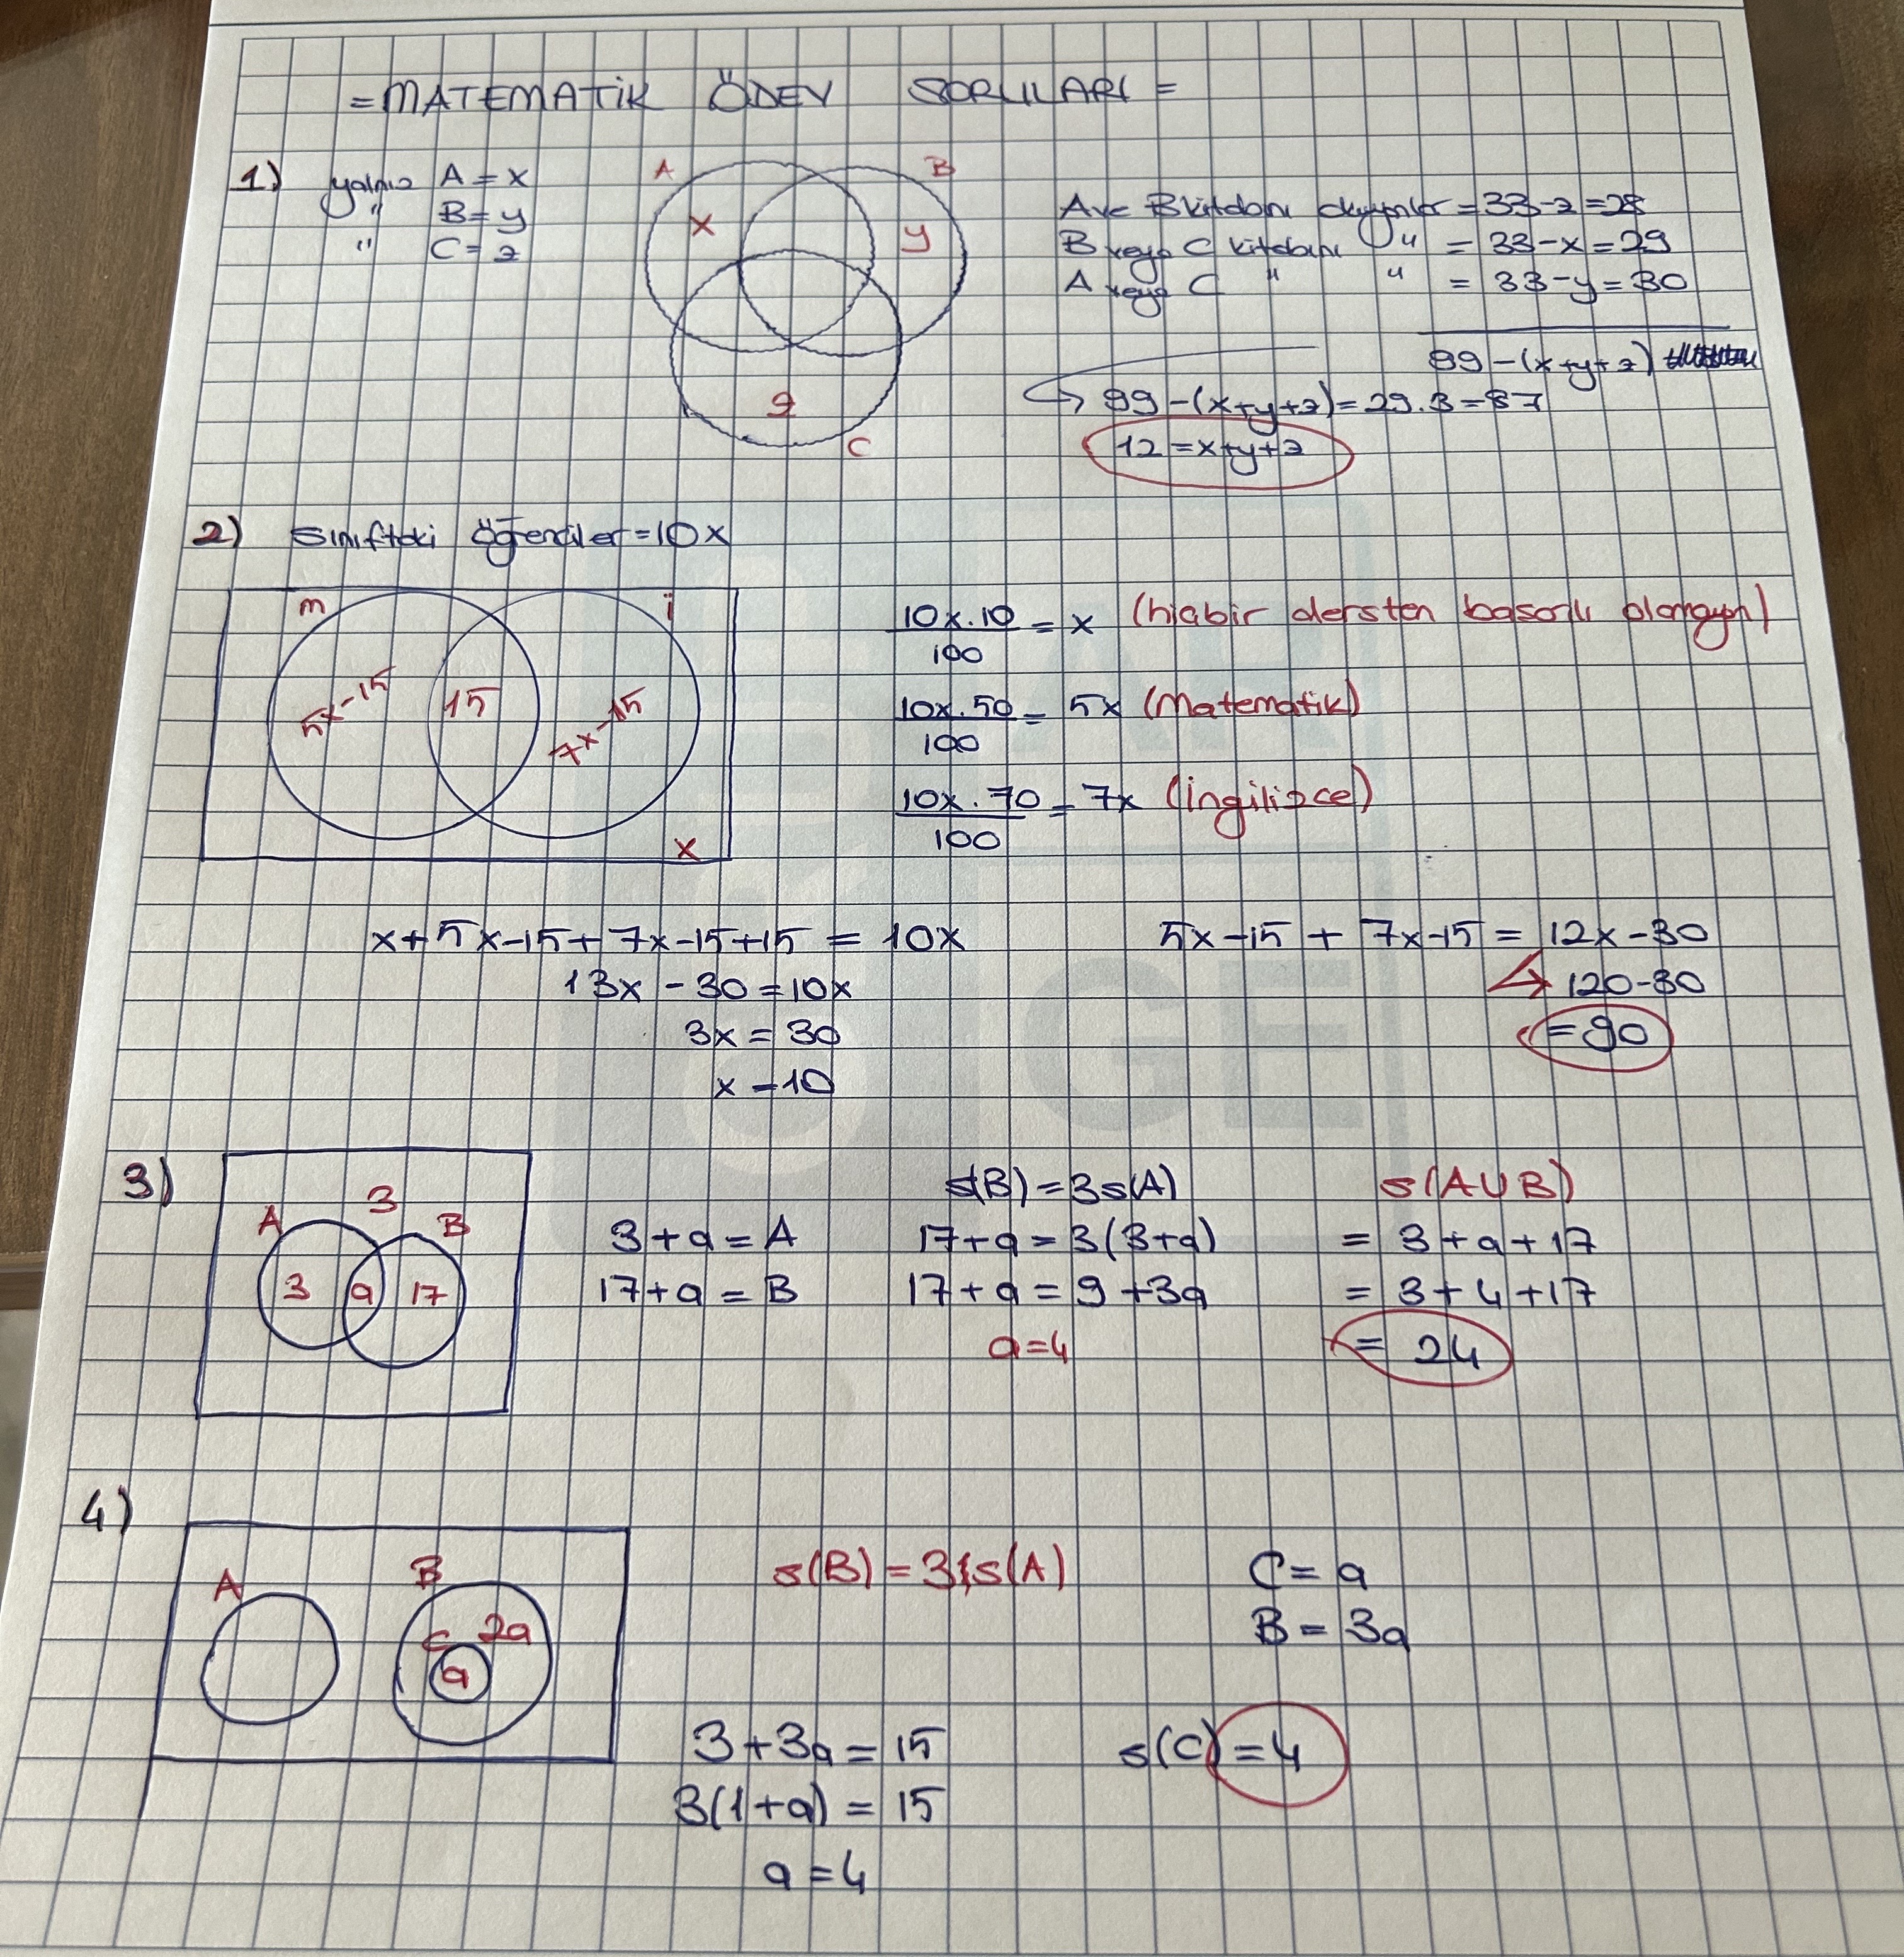 =MATEMATİK ÖDEV SORULARI=
1) yalnız A=x
" B=y
" C=z
A
B
x
y
z
C
A ve B kitabını okuyanlar=33-z=28
B veya C kitabını " =33-x=29
A veya C " " =33-y=30
99-(x+y+z)
99-(x+y+z)=29.3=87
12=x+y+z
2) Sınıftaki öğrenciler=10x
m
i
5x-15
15
7x-15
x
10x.10/100 = x (hiçbir dersten başarılı olamayan)
10x.50/100 = 5x (Matematik)
10x.70/100 = 7x (İngilizce)
x+5x-15+7x-15+15=10x
13x-30=10x
3x=30
x=10
5x-15+7x-15=12x-30
120-30
=90
3)
3
A
B
3
a
17
3+a=A
17+a=B
s(B)=3s(A)
17+a=3(3+a)
17+a=9+3a
a=4
s(A∪B)
=3+a+17
=3+4+17
=24
4)
A
B
C
2a
a
s(B)=3s(A)
C=a
B=3a
3+3a=15
3(1+a)=15
a=4
s(C)=4
AR
GE